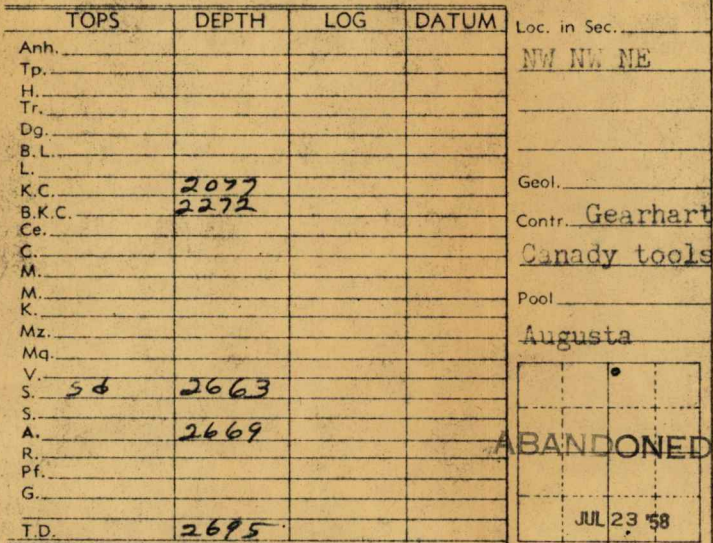 TOPS DEPTH LOG DATUM
Anh.
Tp.
H.
Tr.
Dg.
B.L.
L.
K.C. 2077
B.K.C. 2272
Ce.
C.
M.
M.
K.
Mz.
Mq.
V.
S. sd 2663
S.
A. 2669
R.
Pf.
G.
T.D. 2695
Loc. in Sec.
NW NW NE
Geol.
Contr. Gearhart
Canady tools
Pool
Augusta
ABANDONED
JUL 23 '58